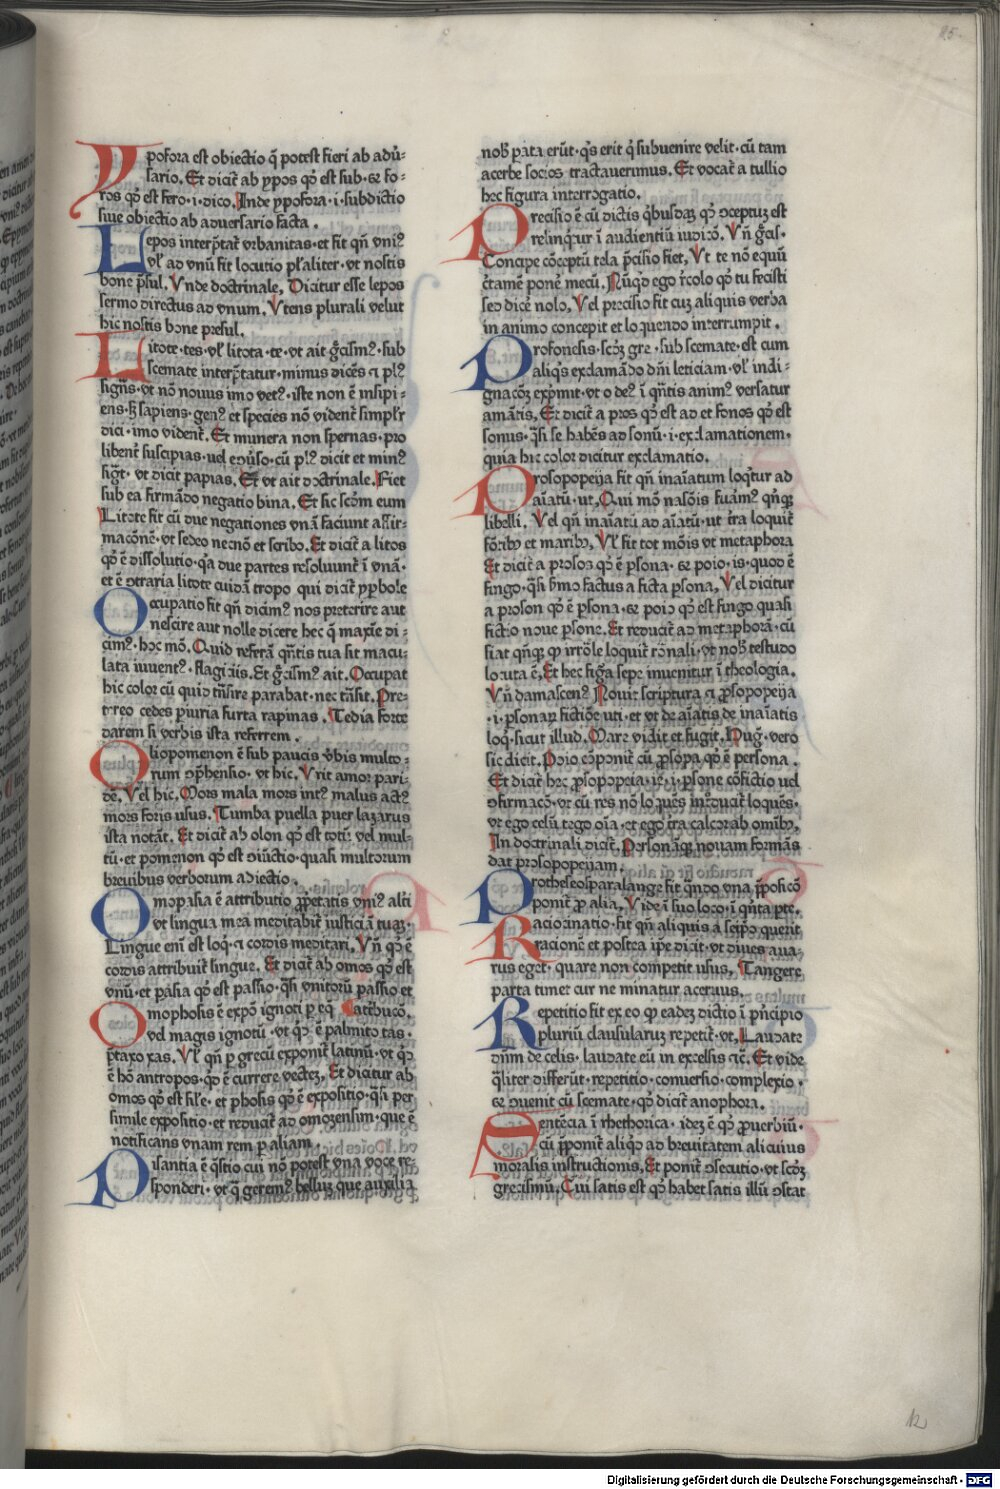 Ypofora est obiectio q̄ potest fieri ab adũ-
sario. Et dicit̃ ab ypos qḋ est sub · ⁊ fo-
ros qḋ est fero · i · dico. Inde ypofora · i · subdictio
siue obiectio ab aduersario facta.
Lepos interp̃tat̃ vrbanitas · et fit qñ vniꝰ
vl̓ ad vnũ fit locutio pl̓aliter · vt nostis
bone p̃sul. Vnde doctrinale. Dicitur esse lepos
sermo directus ad vnum. Vtens plurali velut
hic nostis bone presul.
Litote · tes · vl̓ litota · te · vt ait g̃cismꝰ · sub
scemate interp̃tatur · minus dicẽs ⁊ plꝰ
sig̃ns · vt nõ nouus imo vetꝰ · iste non ẽ insipi-
ens · ꝫ sapiens · genꝰ et species nõ vident̃ simpl̓r
dici · imo vident̃. Et munera non spernas · pro
libent̃ suscipias · uel ecõuso · cũ plꝰ dicit et minꝰ
sig̃t · vt dicit papias. Et vt ait doctrinale. Fiet
sub ea firmãdo negatio bina. Et sic scd̓m eum
Litote fit cũ due negationes vnã faciunt affir-
macõnẽ · vt sedeo necnõ et scribo. Et dicit̃ a litos
qḋ ẽ dissolutio · q̃a due partes resoluunt̃ ĩ vnã ·
et ẽ ↄtraria litote cuidã tropo qui dicit̃ yp̱bole
Occupatio fit qñ dicimꝰ nos preterire aut
nescire aut nolle dicere hec q̃ maxĩe di-
cimꝰ · hoc mõ. Quid referã q̃ntis tua sit macu-
lata iuuentꝰ · flagiciis. Et g̃cismꝰ ait. Occupat
hic color cũ quid tñsire parabat · nec tñsit. Pre-
tereo cedes p̱iuria furta rapinas. Tedia forte
darem si verbis ista referrem.
Oliopomenon ẽ sub paucis v̓bis multo-
rum ↄp̃hensio · vt hic. Vrit amor pari-
dẽ. Vel hic. Mors mala mors intꝰ malus actꝰ
mors foris usus. Tumba puella puer lazarus
ista notãt. Et dicit̃ ab olon qḋ est totũ · vel mul-
tũ · et pomenon qḋ est ↄiũctio · quasi multorum
breuibus verborum adiectio.
Omopasia ẽ attributio p̱p̃etatis vniꝰ alt̃i
vt lingua mea meditabit̃ iusticiã tuaꝫ ·
Lingue enĩ est loq̃ · ⁊ cordis meditari. Vñ qḋ ẽ
cordis attribuit̃ lingue. Et dicit̃ ab omos qḋ est
vnũ · et pasia qḋ est passio · q̃si vnitorũ passio et
Omophosis ẽ expõ ignoti p̱ eq̃ attributio.
vel magis ignotũ · vt qḋ ẽ palmito tas ·
p̃taxo xas. Vl̓ qñ p̱ grecũ exponit̃ latinũ · vt qḋ
ẽ hõ antropos · qḋ ẽ currere vectes. Et dicitur ab
omos qḋ est sil̓e · et phosis qḋ ẽ expositio · q̃si per
simile expositio · et reducit̃ ad omozensim · que ẽ
notificans vnam rem p̱ aliam.
Pisantia ẽ q̃stio cui nõ potest vna voce re-
sponderi · vt q̃ geremꝰ bella · que auxilia
nob̓ pata erũt · q̃s erit q̃ subuenire velit · cũ tam
acerbe socios tractauerimus. Et vocat̃ a tullio
hec figura interrogatio.
Precisio ẽ cũ dictis q̃busdaꝫ qḋ ↄceptuꝫ est
relinq̃ur ĩ audientiũ iudicõ. Vñ g̃as.
Concipe cõceptũ tela p̃cisio fiet. Vt te nõ equũ
c̃tamẽ ponẽ mecũ. Nũq̃d ego r̃colo qḋ tu fecisti
sed dicẽ nolo. Vel precisio fit cuꝫ aliquis verba
in animo concepit et loquendo interrumpit.
Profonesis · scd̓ꝫ gre · sub scemate · est cum
aliq̃s exclamãdo dñi leticiam · vl̓ indi-
gnacõꝫ exp̃mit · vt o deꝰ ĩ q̃ntis animꝰ versatur
amãtis. Et dicit̃ a pros qḋ est ad et fonos qḋ est
sonus · q̃si se habẽs ad sonũ · i · exclamationem ·
quia hic color dicitur exclamatio.
Prosopopeija fit qñ inaĩatum loq̃tur ad
aĩatũ · ut. Qui mõ nasõis fuãmꝰ q̃nq̃ꝫ
libelli. Vel qñ inaĩatũ ad aĩatũ · ut t̃ra loquit̃
fõribꝫ et maribꝫ. Vl̓ fit tot mõis vt metaphora
Et dicit̃ a prosos qḋ ẽ p̱sona · ⁊ poio · is · quod ẽ
fingo · q̃si s̃mo factus a ficta p̱sona. Vel dicitur
a proson qḋ ẽ p̱sona · ⁊ poio qḋ est fingo quasi
fictio noue p̱sone. Et reducit̃ ad metaphorã · cũ
fiat q̃nq̃ꝫ ꝙ irrõle loquit̃ rõnali · vt nob̓ testudo
locuta ẽ. Et hec fig̃a sepe inuenitur ĩ theologia.
Vñ damascenꝰ Nouit scriptura ⁊ p̱sopopeija
· i · p̱sonaꝝ fictiõe uti · et vt de aĩatis de inaĩatis
loq̃ · sicut illud. Mare vidit et fugit. Hug̃ · vero
sic dicit. Poio cõponit̃ cũ p̱sopa qḋ ẽ persona.
Et dicit̃ hec p̱sopopeia · ie · i · p̱sone cõfictio uel
ↄfirmacõ · vt cũ res nõ loq̃ns introducit̃ loquẽs ·
vt ego celũ tego oĩa · et ego t̃ra calcorab omĩbꝫ.
In doctrinali dicit̃. Personãq̃ꝫ nouam formãs
dat prosopopeijam
Protheseosparalange fit q̃ndo vna p̱posicõ
ponit̃ p̱ alia. Vide ĩ suo loco · ĩ q̃rta p̱te.
Raciocinatio · fit qñ aliquis a seip̃o querit
racionẽ et postea ip̃e dicit · vt diues aua-
rus eget · quare non competit usus. Tangere
parta timet cur ne minatur aceruus.
Repetitio fit ex eo ꝙ eadeꝫ dictio ĩ p̃ncipio
pluriũ clausularuꝫ repetit̃ · vt. Laudate
dñm de celis · laudate eũ in excelsis ⁊c̃. Et vide
q̃liter differũt · repetitio · conuersio · complexio.
⁊ ↄuenit cũ scemate · qḋ dicit̃ anophora.
Sentẽcia ĩ rhethorica · idem ẽ qḋ p̱uerbiũ ·
cũ p̱ponit̃ aliq̃d ad breuitatem alicuius
moralis instructionis. Et ponit̃ ↄsecutio · vt scd̓ꝫ
grecismũ. Cui satis est qḋ habet satis illũ ↄstat
12
Digitalisierung gefördert durch die Deutsche Forschungsgemeinschaft · DFG